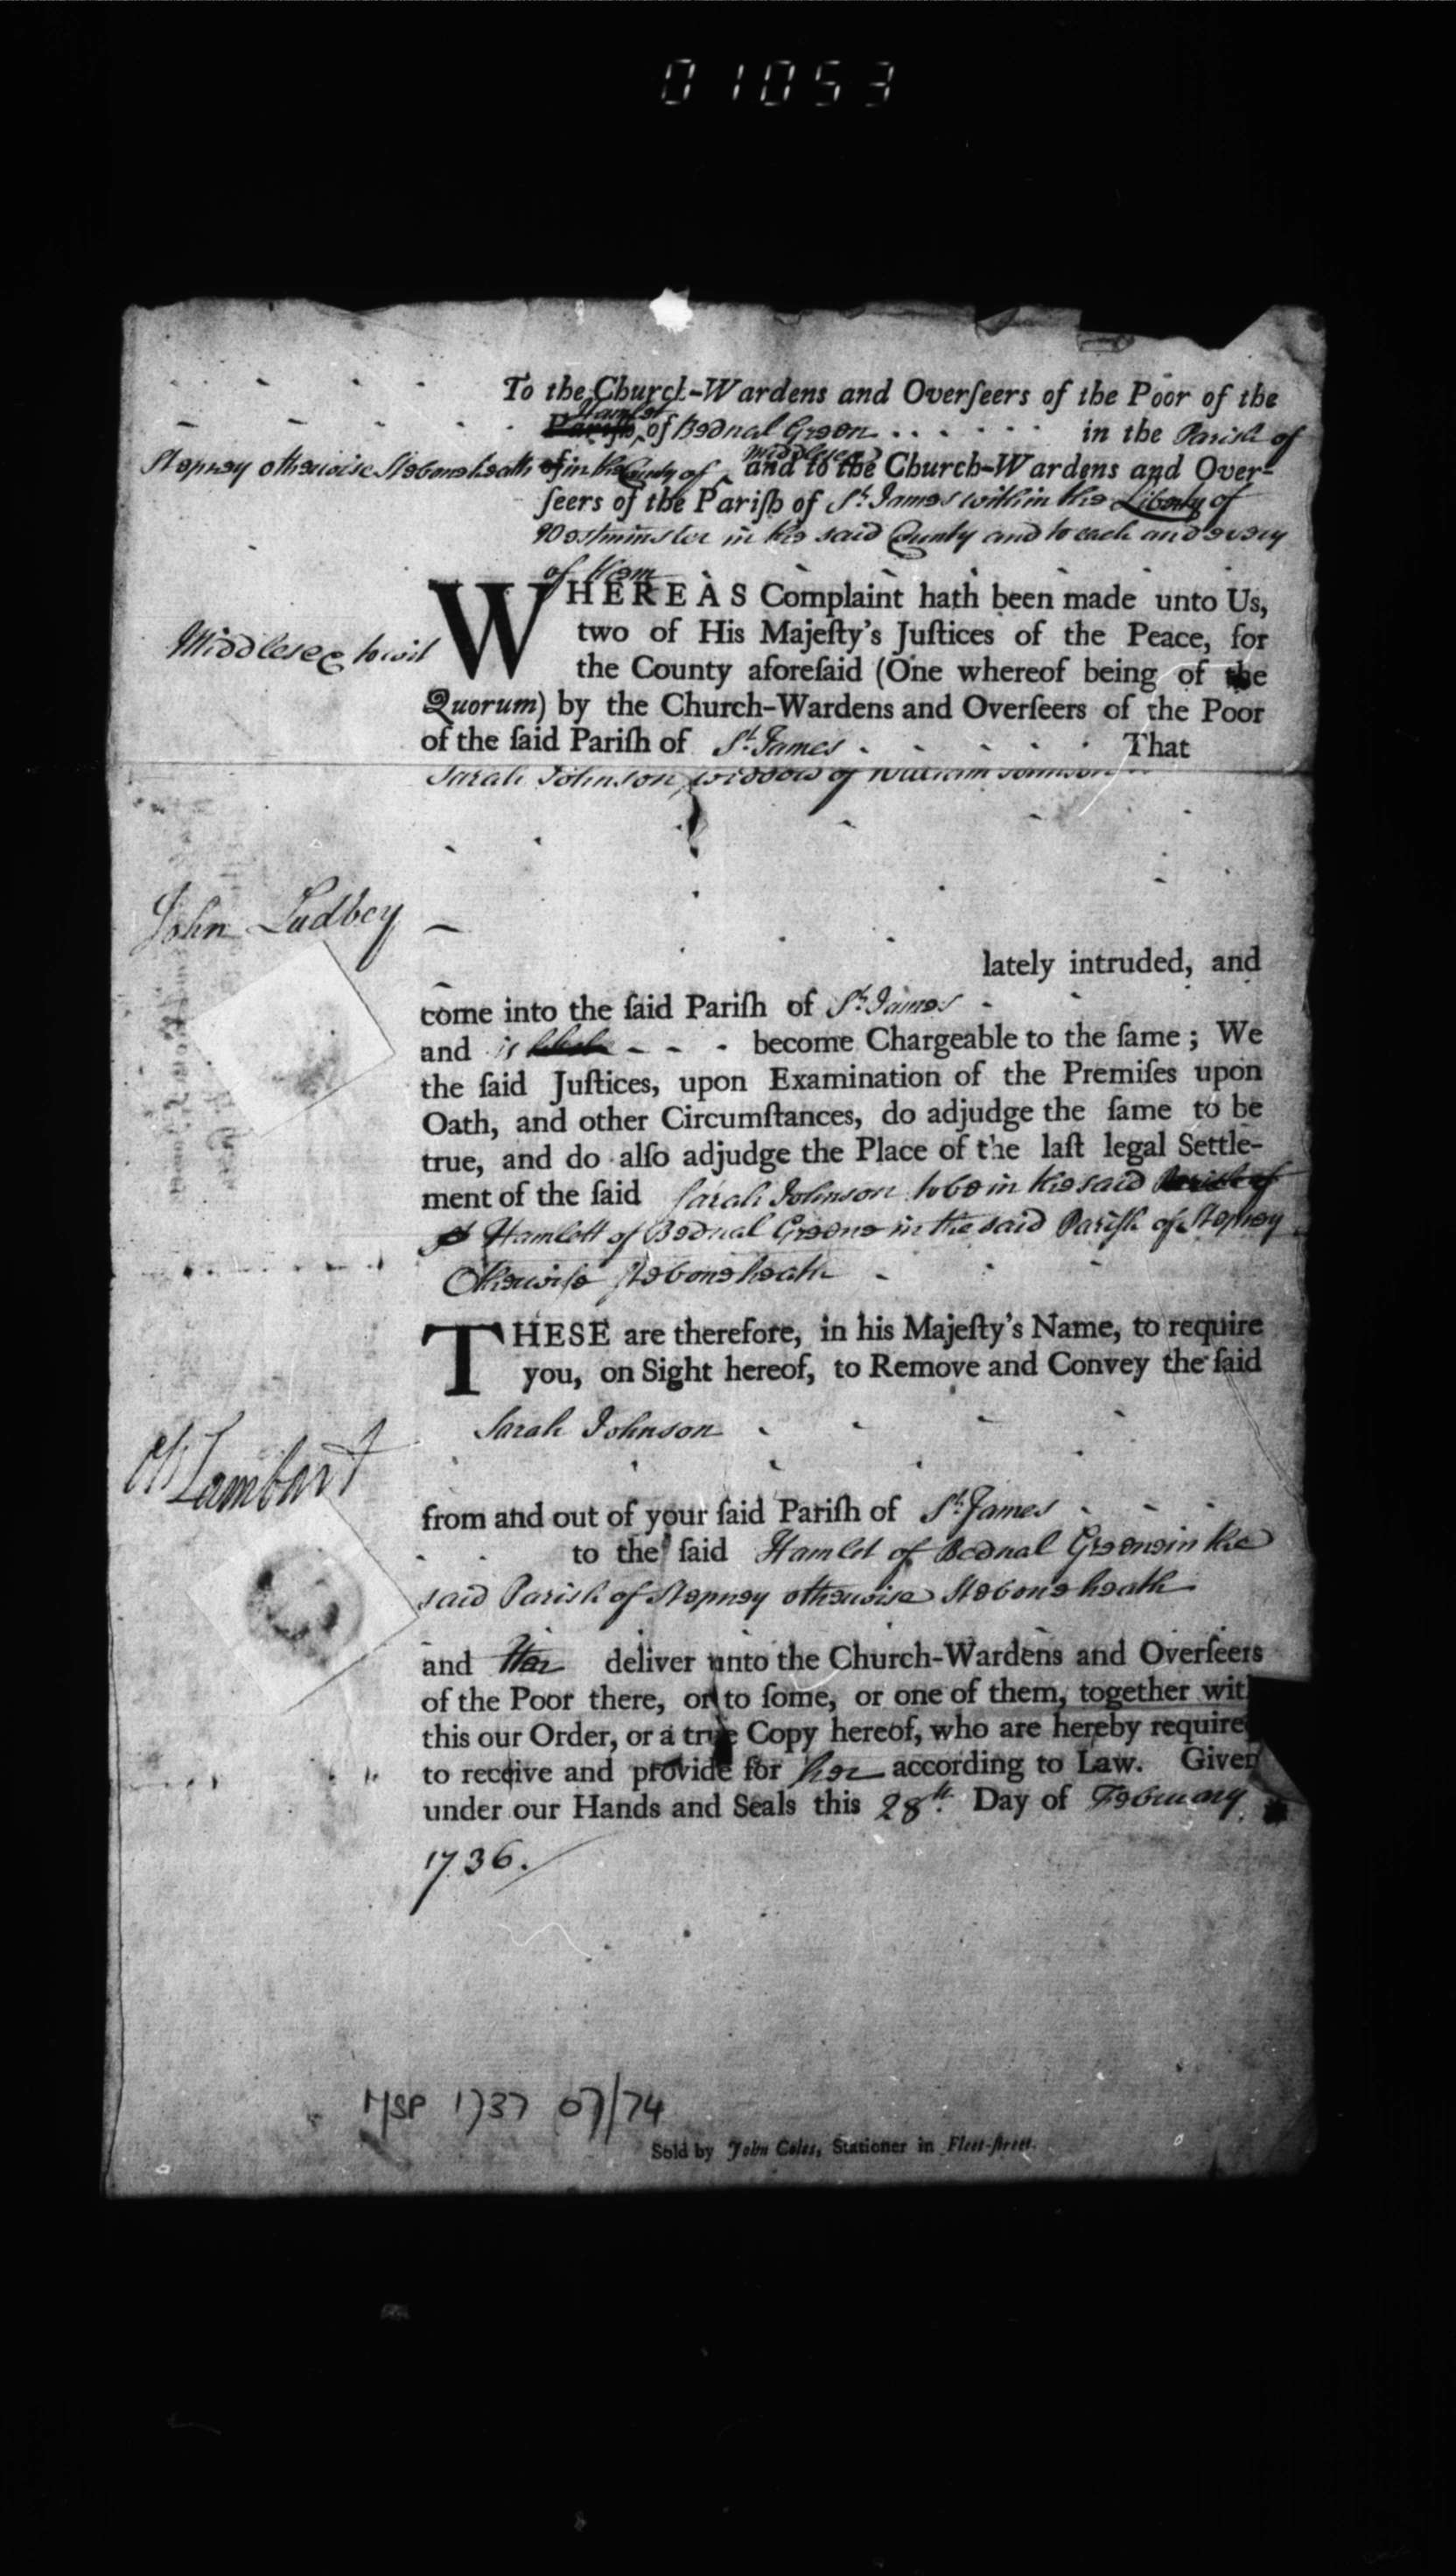 01053
To the Church-Wardens and Overſeers of the Poor of the
Hamlet
Pariſh of Bednal Green in the Parish of
Middlesex
Stepney otherwise Stebonheath in the County of and to the Church-Wardens and Over-
ſeers of the Pariſh of St. James within the Liberty of
Westminster in the said County and to each and every
of them
WHEREAS Complaint hath been made unto Us,
Middlesex to wit two of His Majeſty's Juſtices of the Peace, for
the County aforeſaid (One whereof being of the
Quorum) by the Church-Wardens and Overſeers of the Poor
of the ſaid Pariſh of St. James That
Sarah Johnson widdow of William Johnson
John Ludbey
lately intruded, and
come into the ſaid Pariſh of St. James
and is become Chargeable to the ſame; We
the ſaid Juſtices, upon Examination of the Premiſes upon
Oath, and other Circumſtances, do adjudge the ſame to be
true, and do alſo adjudge the Place of the laſt legal Settle-
ment of the ſaid Sarah Johnson to be in the said Parish of
Hamlott of Bednal Greene in the said Parish of Stepney
Otherwise Stebone heath
THESE are therefore, in his Majeſty's Name, to require
you, on Sight hereof, to Remove and Convey the ſaid
Sarah Johnson
Lambart
from and out of your ſaid Pariſh of St. James
to the ſaid Hamlet of Bednal Greene in the
said Parish of Stepney otherwise Stebone heath
and Her deliver unto the Church-Wardens and Overſeers
of the Poor there, or to ſome, or one of them, together with
this our Order, or a true Copy hereof, who are hereby require
to receive and provide for her according to Law. Given
under our Hands and Seals this 28th. Day of February
1736.
MSP 1737 07/74
Sold by John Coles, Stationer in Fleet-ſtreet.